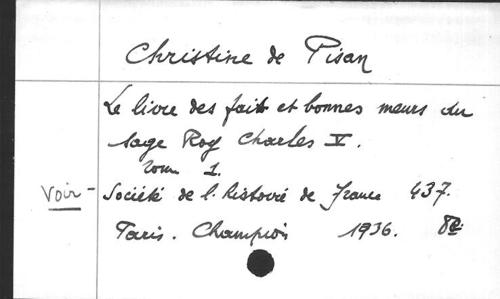 Christine de Pisan
Le livre des faits et bonnes meurs du
sage Roy Charles V.
Tom 1.
Voir - Société de l. histoire de France 437.
Paris. Champion 1936. 8°